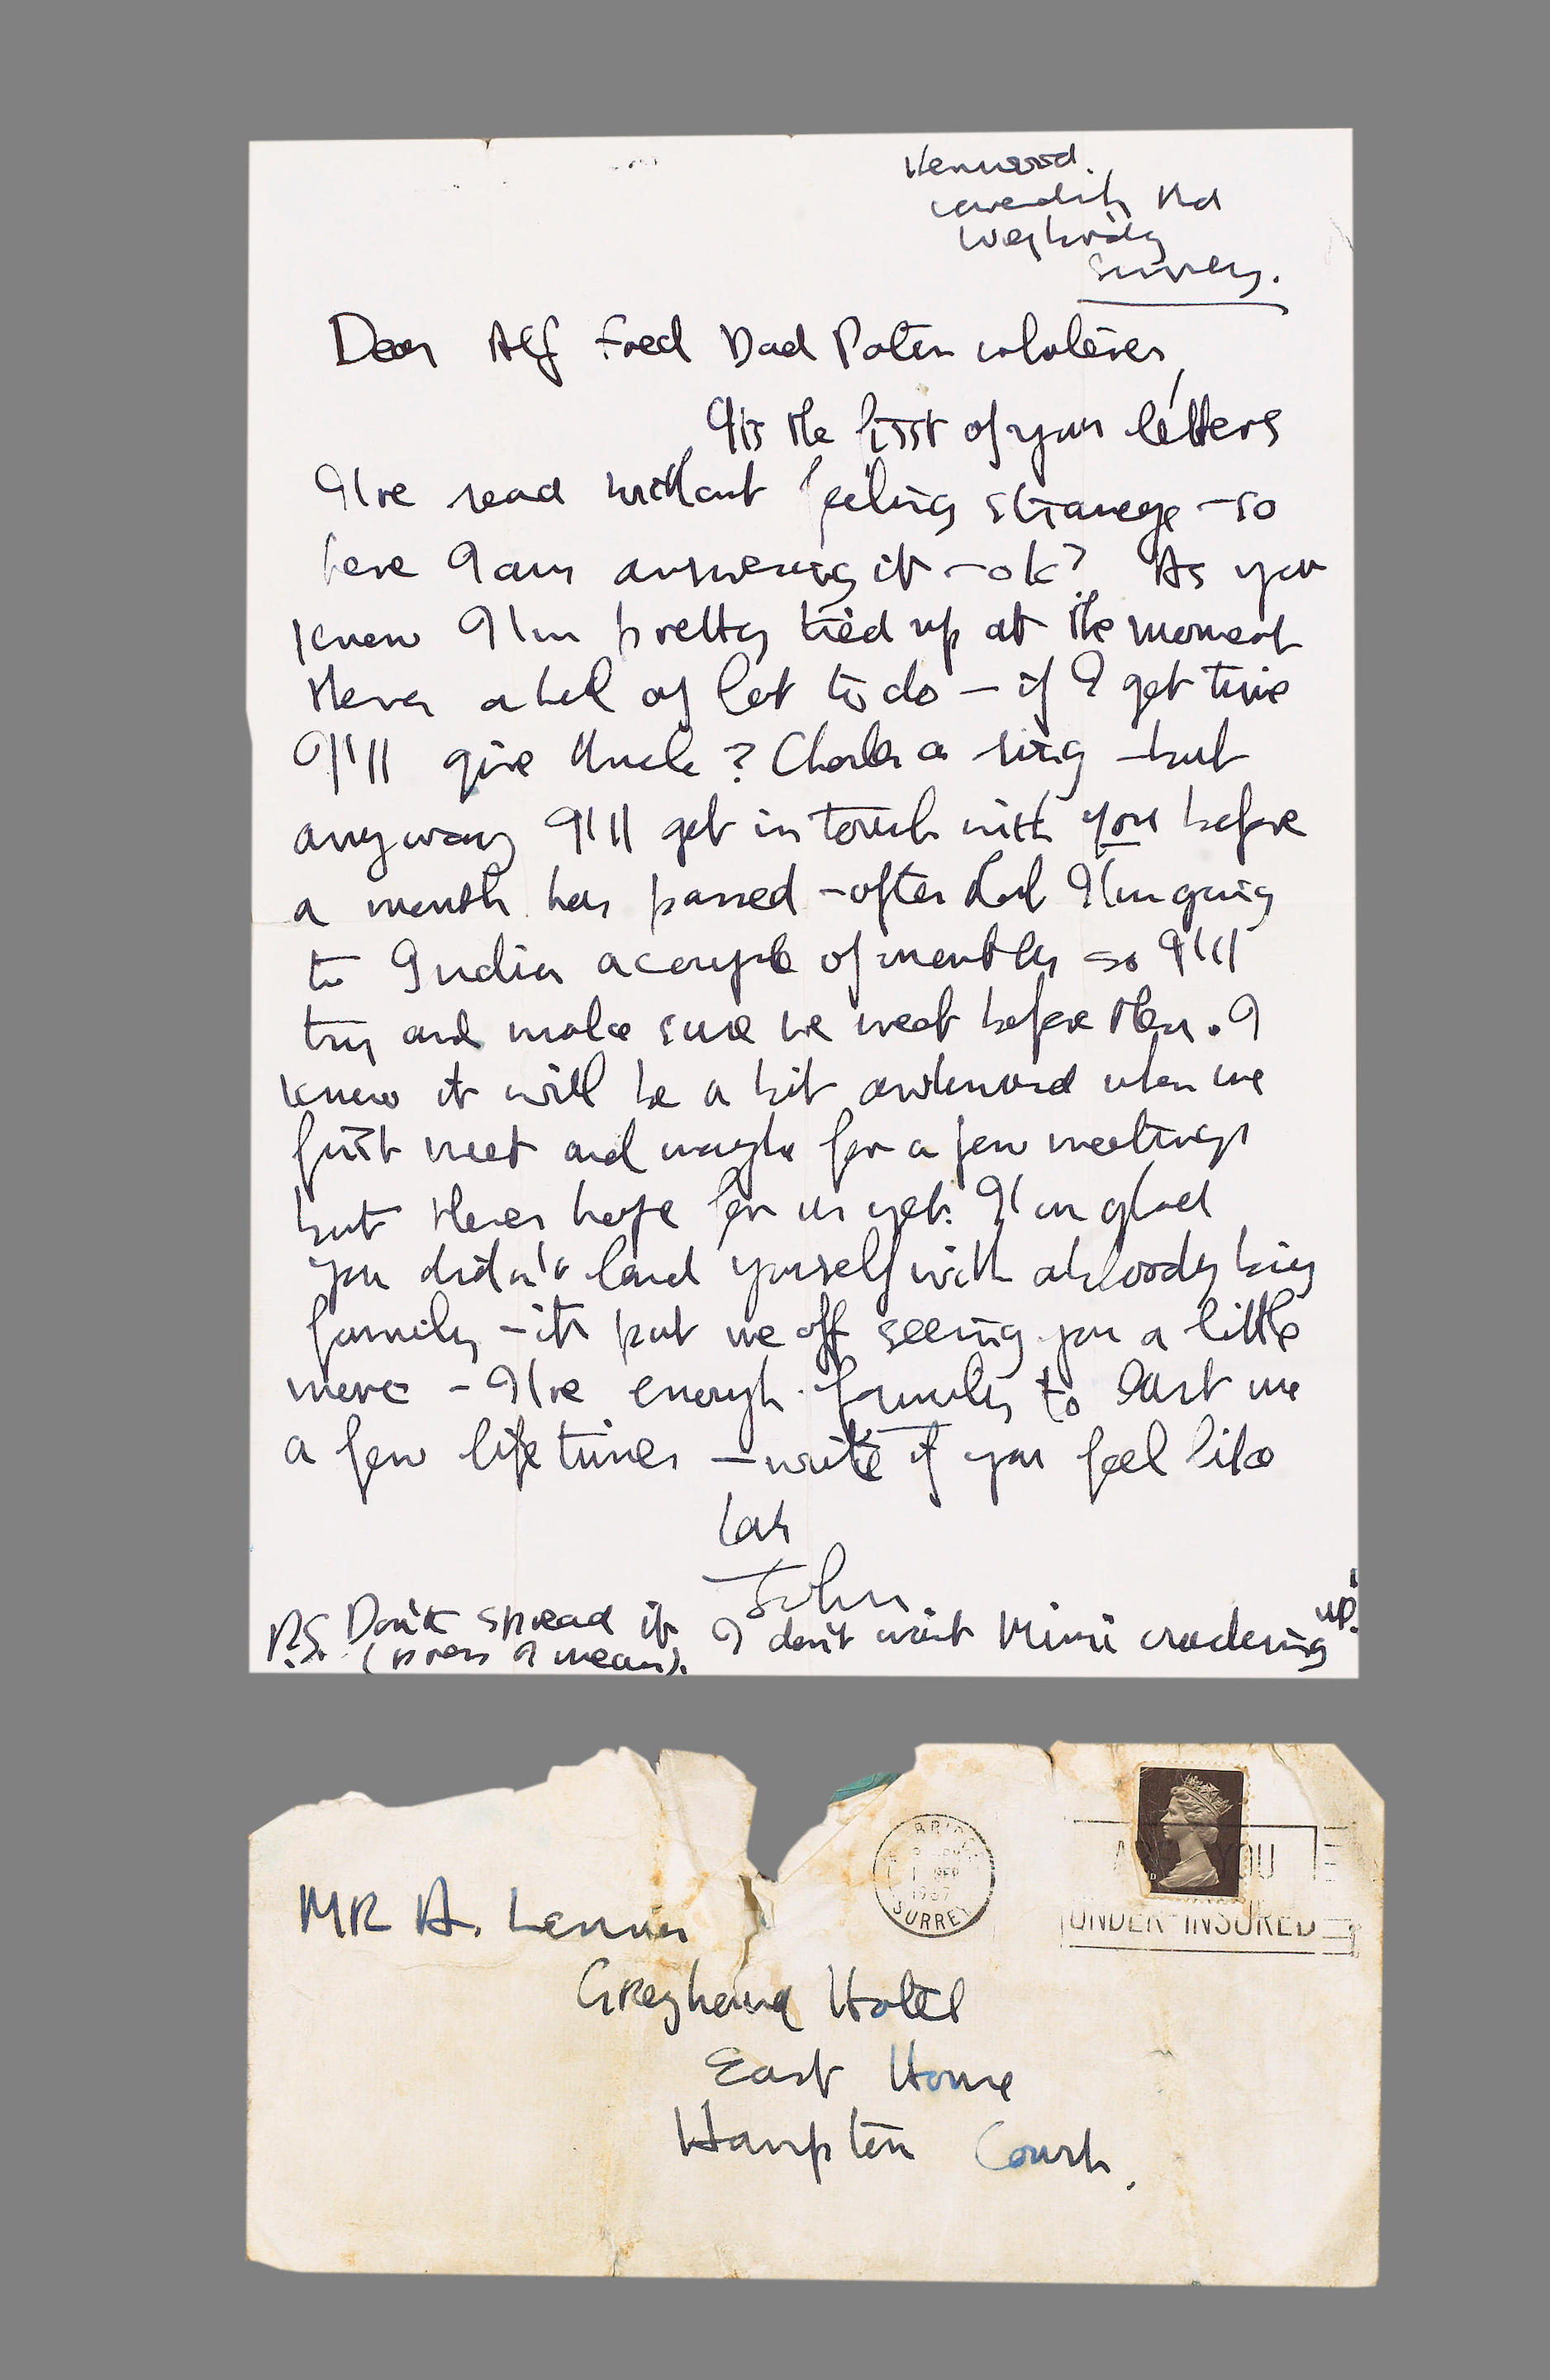 Kenwood.
Cavendish Rd
Weybridg
Surrey.
Dear Alf Fred Dad Pater whatever,
It's the first of your letters
I've read without feeling strange - so
here I am answering it - ok? As you
know I'm pretty tied up at the moment
theres a hell of lot to do - if I get time
I'll give Uncle? Charles a ring - but
anyway I'll get in touch with you before
a month has passed - after that I'm going
to India a couple of months so I'll
try and make sure we meet before then. I
know it will be a bit awkward when we
first meet and maybe for a few meetings
but theres hope for us yet. I'm glad
you didn't land yourself with a bloody big
family - its put me off seeing you a little
more - I've enough family to last me
a few life times - write if you feel like
John
P.S. Don't spread it I don't want Mimi cracking up!
(press I mean).
BRIDGE
1 SEP
1967
SURREY
ARE YOU
UNDER-INSURED
MR A. Lennon
Greyhound Hotel
East House
Hampton Court.